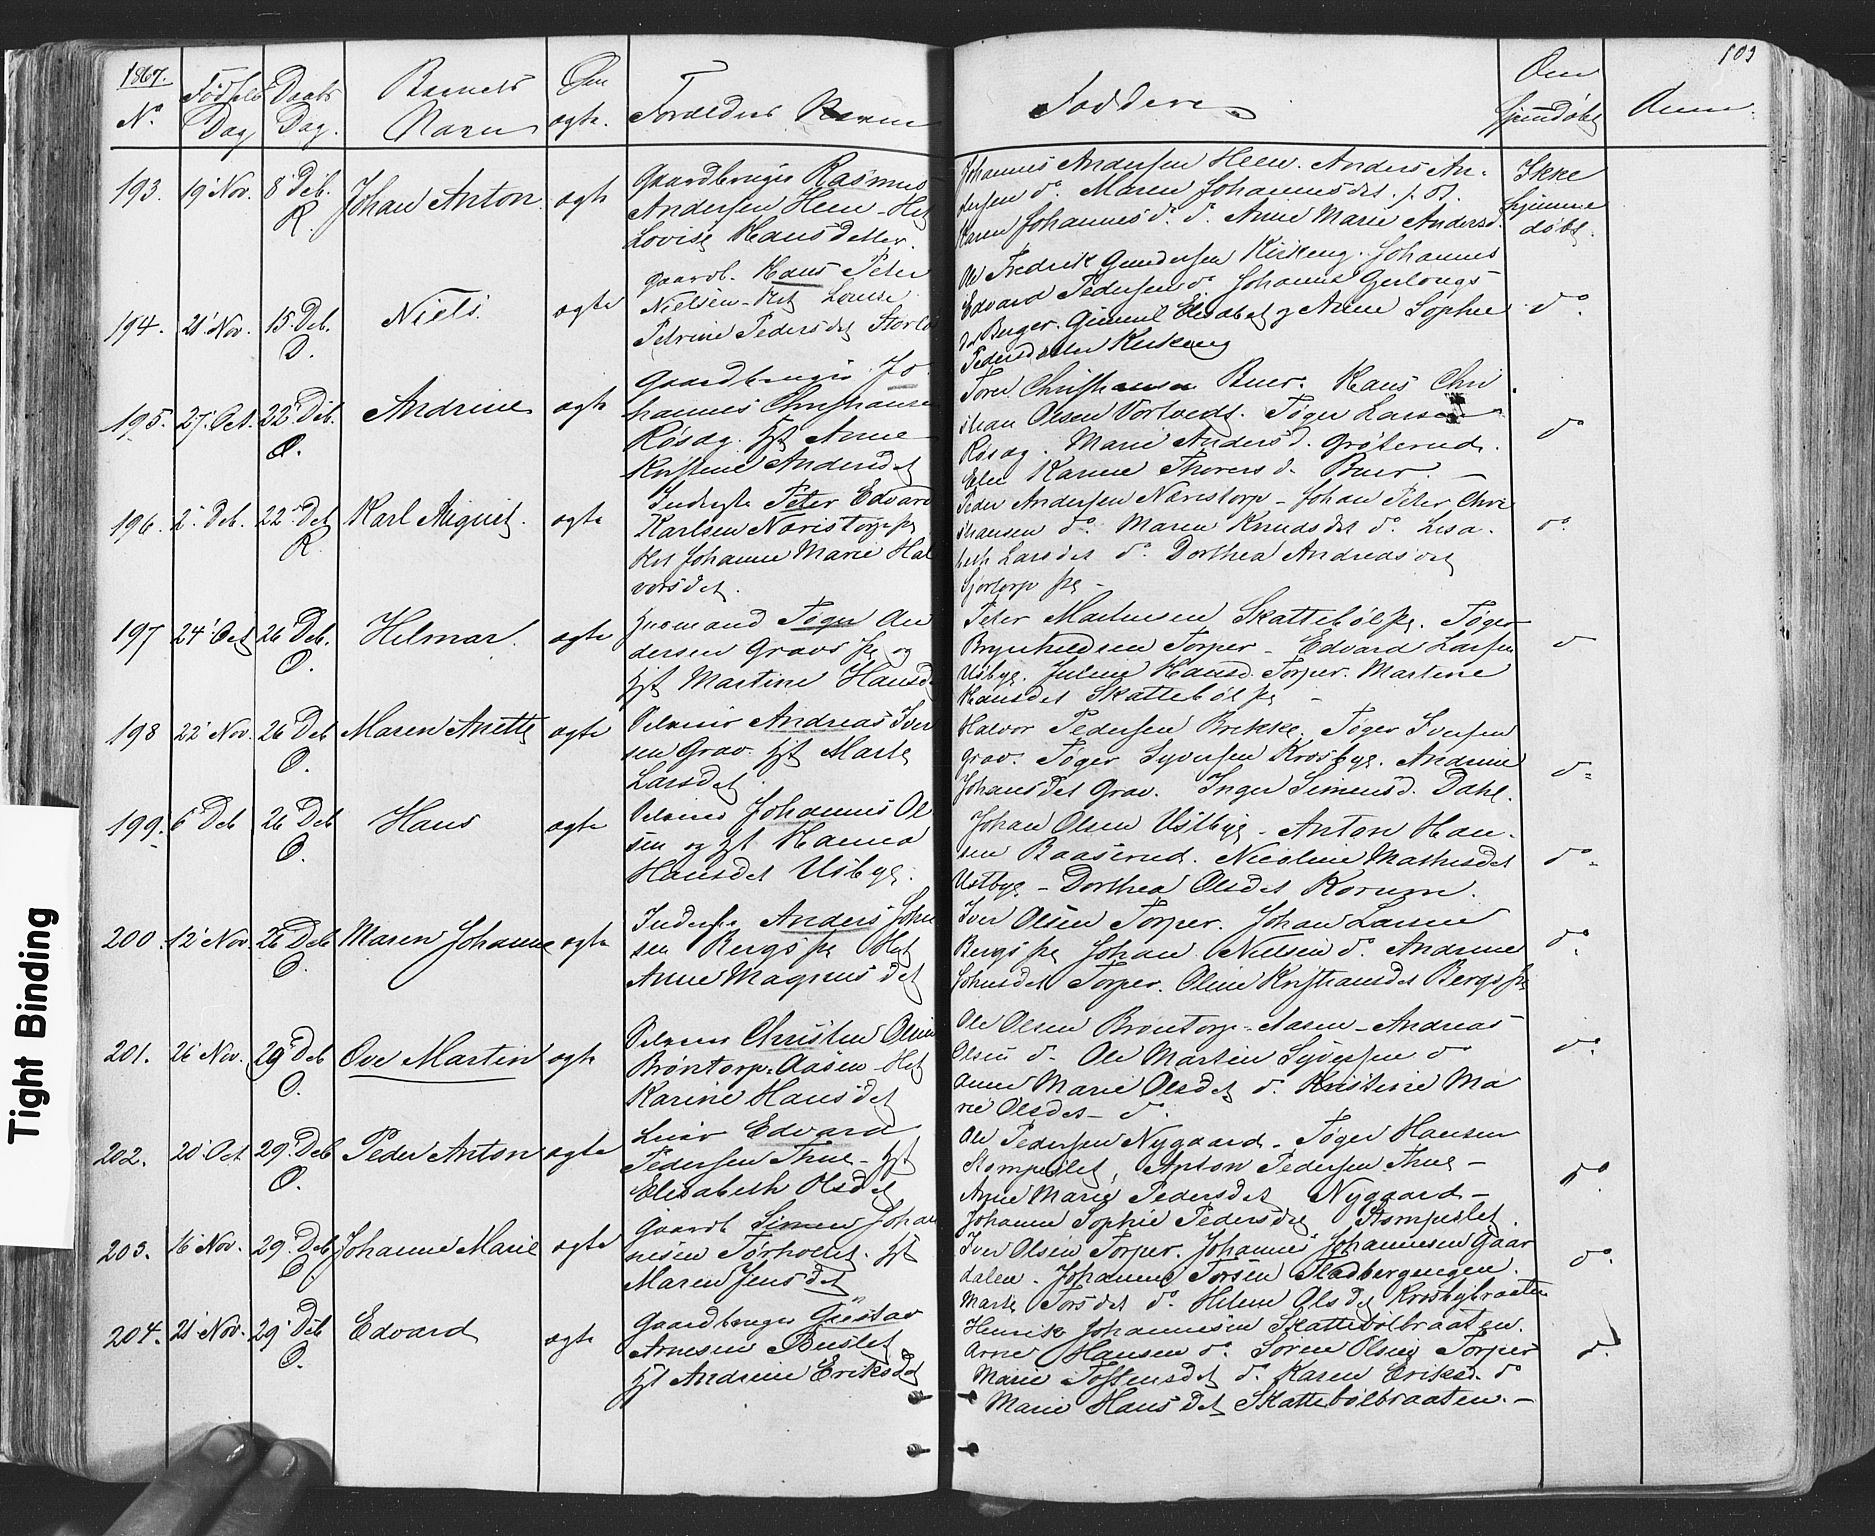 1867.
No
Fødsels Dag
Daabs Dag.
Barnets Navn
Om ægte.
Forældres Navne
Faddere
Om hjemdøbt
Anm.
103
193. 19 Nov. 8 Deb. R. Johan Anton ægte
Gaardbruger Rasmus
Andersen Heen - Het
Lovise Hansdatter.
Johannes Andersen Heen. Anders An-
dersen do. Maren Johannesdet.
Karen Johannesd. do. Anne Marie Andersd.
Ikke
hjemme
døbt.
194. 21 Nov. 15 Deb. O. Niels ægte
Gaardb. Hans Peter
Nielsen - Het Lovise
Petrine Pedersdet
Ole Fredrik Gundersen Kirkeng. Johannes
Edvard Pedersen do Johanne
Berger. Elisabet og Anne Sophie
Pedersdatter Kirkeng
do.
195. 27 Oct. 22 Deb. O. Andrine ægte
Gaardbruger Jo-
hannes Christiansen
Røsæg. Hft Anne
Kirstine Andersdet
Tored Christiansen Buer. Hans Chri
stian Olsen Vortvedt. Tøger Larsen
Røsæg. Marie Andersd. Grøterud.
Elen Karine Thorersd. Buer. -
do
196. 2 Deb. 22 Deb R. Karl August. ægte
Inderste Peter Edvard
Karlsen Navestorp
Het Johanne Marie Hal
vorsdet.
Peder Andersen Navestorp - Johan Peter Chri
stiansen do. Maren Knudsdet do. Lisa-
beth Larsdet do. Dorthea Andreasdet
do.
197 24 Oct 26 Deb. O. Hilmar. ægte
Tøger An
dersen Gravs og
Hft Martine Hansd
Peter Martinsen Skattebøl. Tøger
Brynhildsen Torper - Edvard Larsen
Usbye. Juline Hansd. Torper. Martine
Hansdet Skattebøl
198 22 Nov. 26 Deb O. Maren Anette ægte
Andreas Iver
sen Grav. Hft Marte
Larsdet.
Halvor Pedersen Brekke. Tøger Iversen
Grav. Tøger Syversen Krosbye. Andrine
Johansdet Grav. Inger Simensd. Dahl.
do
199. 6 Deb 26 Deb O. Hans ægte
Johannes Ol
sen og Hft Hanna
Hansdet Usbye.
Johan Olsen Ustbye - Anton Han-
sen Baaserud. Nicoline Mathisdet
Ustbye - Dorthea Olsdet Korum.
do.
200. 12 Nov. 26 Deb O. Maren Johanne ægte
Inderst Anders John
sen Bergs Het
Anne Magnusdet
Iver Olsen Torper. Johan Larsen
Bergs Johan Nielsen do. Andrine
Johnsdet Torper. Oline Kristiansdet Bergs
do.
201. 26 Nov. 29 Deb O. Ove Martin ægte
Christen Olsen
Brøntorp. Aasen - Het
Karine Hansdet
Ole Olsen Brøntorp - Aasen - Andreas
Olsen do. Ole Martin Syversen do
Anne Marie Olsdet do. Kristine Ma
rie Olsdet - do.
do.
202. 20 Oct 29 Deb O. Peder Anton ægte
Edvard
Pedersen Thue - Hft
Elisabeth Olsdet
Ole Pedersen Nygaard - Tøger Hansen
Stompeslet, Anton Pedersen Thue -
Anne Marie Pedersdet Nygaard -
Johanne Sophie Pedersdet Stompeslet.
do.
203. 16 Nov. 29 Deb O Johanne Marie ægte
Gaardb Simen Johan
nesen Torholtet. Hft
Maren Jensdet
Iver Olsen Torper. Johannes Johannesen Gaar
dalen. Johannes Torsen Fladbergengen.
Marte Torsdet do. Helene Olsdet Krosbybraaten
do.
204. 21 Nov. 29 Deb O. Edvard ægte
Gaardbruger Gustav
Arnesen Buslet
Hft Andrine Eriksdet
Henrik Johannesen Skattebølbraaten.
Arne Hansen do. Søren Olsen Torper
Marie Toftensdet do. Karen Eriksd. do
Marie Hansdet Skattebølbraaten. -
do.
Tight Binding